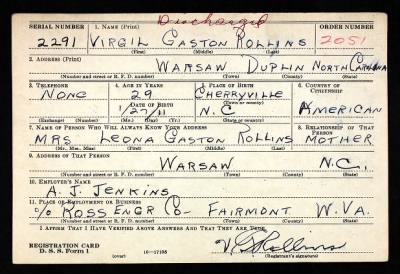 Discharged
SERIAL NUMBER 1. NAME (Print) ORDER NUMBER
2291 VIRGIL GASTON ROLLINS 2051
(First) (Middle) (Last)
2. ADDRESS (Print)
WARSAW DUPLIN NORTH CAROLINA
(Number and street or R. F. D. number) (Town) (County) (State)
3. TELEPHONE 4. AGE IN YEARS 5. PLACE OF BIRTH 6. COUNTRY OF CITIZENSHIP
NONE 29 CHERRYVILLE
DATE OF BIRTH
1/27/11 N.C. AMERICAN
(Exchange) (Number) (Mo.) (Day) (Yr.) (State or country)
7. NAME OF PERSON WHO WILL ALWAYS KNOW YOUR ADDRESS 8. RELATIONSHIP OF THAT PERSON
MRS LEONA GASTON ROLLINS MOTHER
(Mr., Mrs., Miss) (First) (Middle) (Last)
9. ADDRESS OF THAT PERSON
WARSAW N.C.
(Number and street or R. F. D. number) (Town) (County) (State)
10. EMPLOYER'S NAME
A. J. JENKINS
11. PLACE OF EMPLOYMENT OR BUSINESS
c/o ROSS ENGR CO- FAIRMONT W. VA.
(Number and street or R. F. D. number) (Town) (County) (State)
I AFFIRM THAT I HAVE VERIFIED ABOVE ANSWERS AND THAT THEY ARE TRUE.
REGISTRATION CARD
D. S. S. Form 1 16-17105 (Registrant's signature)
V G Rollins